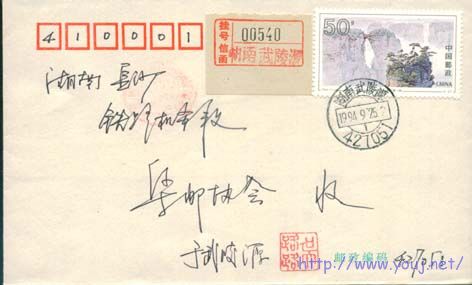 410001
挂号信函
00540
湖南武陵源
50分
中国邮政
CHINA
湖南武陵源
1994.9.25
427051
湖南 长沙
铁路机车
集邮协会 收
于武陵源
邮政编码 427051
http://www.youj.net/